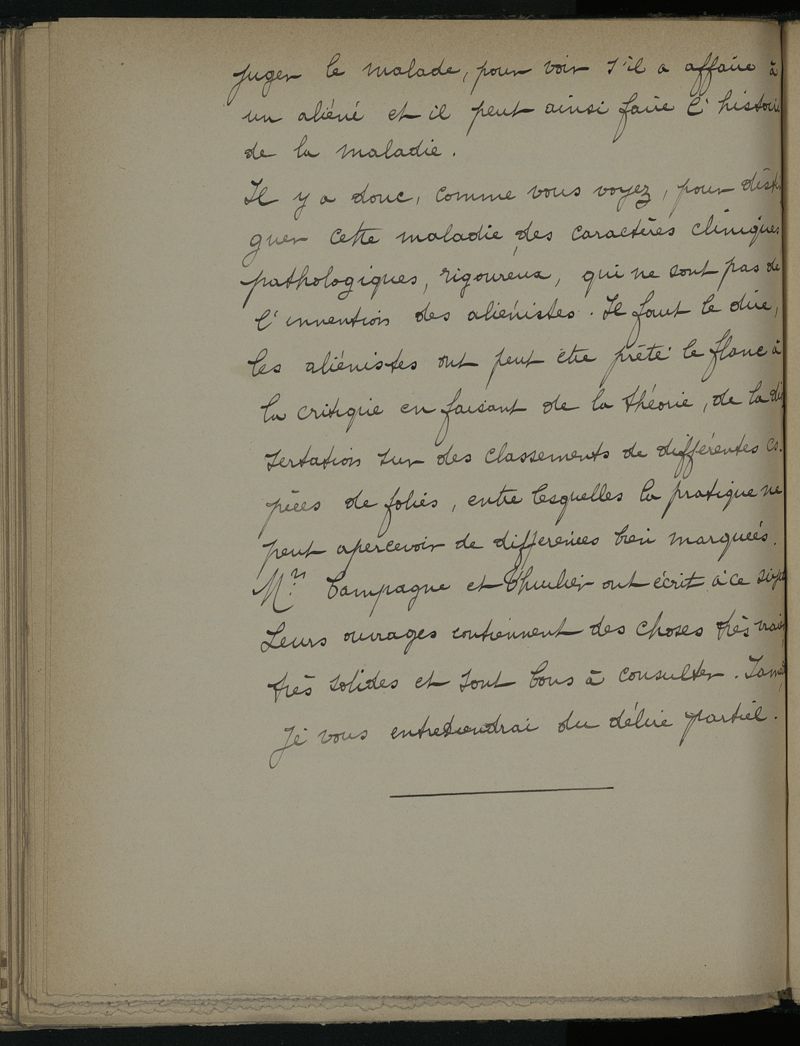 juger le malade, pour voir s'il a affaire à
un aliéné et il peut ainsi faire l'histoire
de la maladie.
Il y a donc, comme vous voyez, pour distin
guer cette maladie des caractères cliniques
pathologiques, rigoureux, qui ne sont pas de
l'invention des aliénistes. Il faut le dire,
les aliénistes ont peut être prêté le flanc à
la critique en faisant de la théorie, de la dis
sertation sur des classements de différentes es.
pèces de foliés, entre lesquelles la pratique ne
peut apercevoir de différences bien marquées.
Mrs. Campagne et ont écrit à ce sujet
Leurs ouvrages contiennent des choses très vraies
très solides et sont bons à consulter.
Je vous entretiendrai du délire partiel.